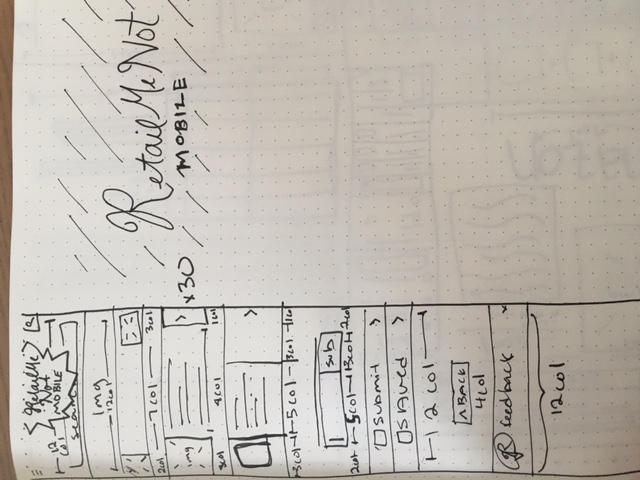 RetailMe
Not
MOBILE
12
COl
sear
Img
12COl
2COl 7COl 3COl
img
3COl 4COl 1COl
x30
3COl 5COl 3COl 1COl
sub
2COl 5COl 3COl 2COl
Submit
SAVED
12 COl
^ BACK
4COl
R feedback
12COl
RetailMeNot
MOBILE